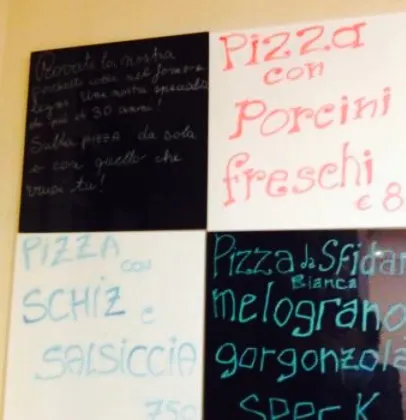 Provate la nostra
cotti nel forno a
legna Una nostra specialità
da più di 30 anni!
Sulla pizza da sola
o con quello che
vuoi tu!
Pizza
con
Porcini
freschi
€ 8
PIZZA
con
SCHIZ e
SALSICCIA
750
Pizza da Sfidar
Bianca
melograno
gorgonzola
SPECK